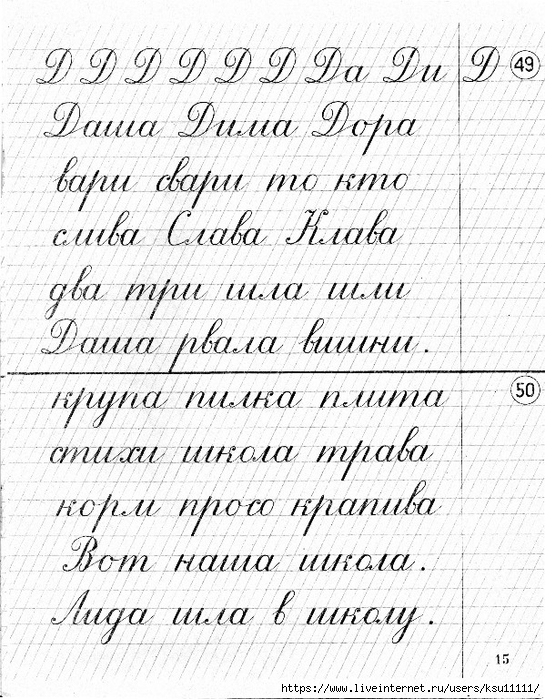 Д Д Д Д Д Д Да Ди Д 49
Даша Дима Дора
вари свари то кто
слива Слава Клава
два три шла шли
Даша рвала вишни.
крупа пилка плита 50
стихи школа трава
корм просо крапива
Вот наша школа.
Лида шла в школу.
15
https://www.liveinternet.ru/users/ksu11111/